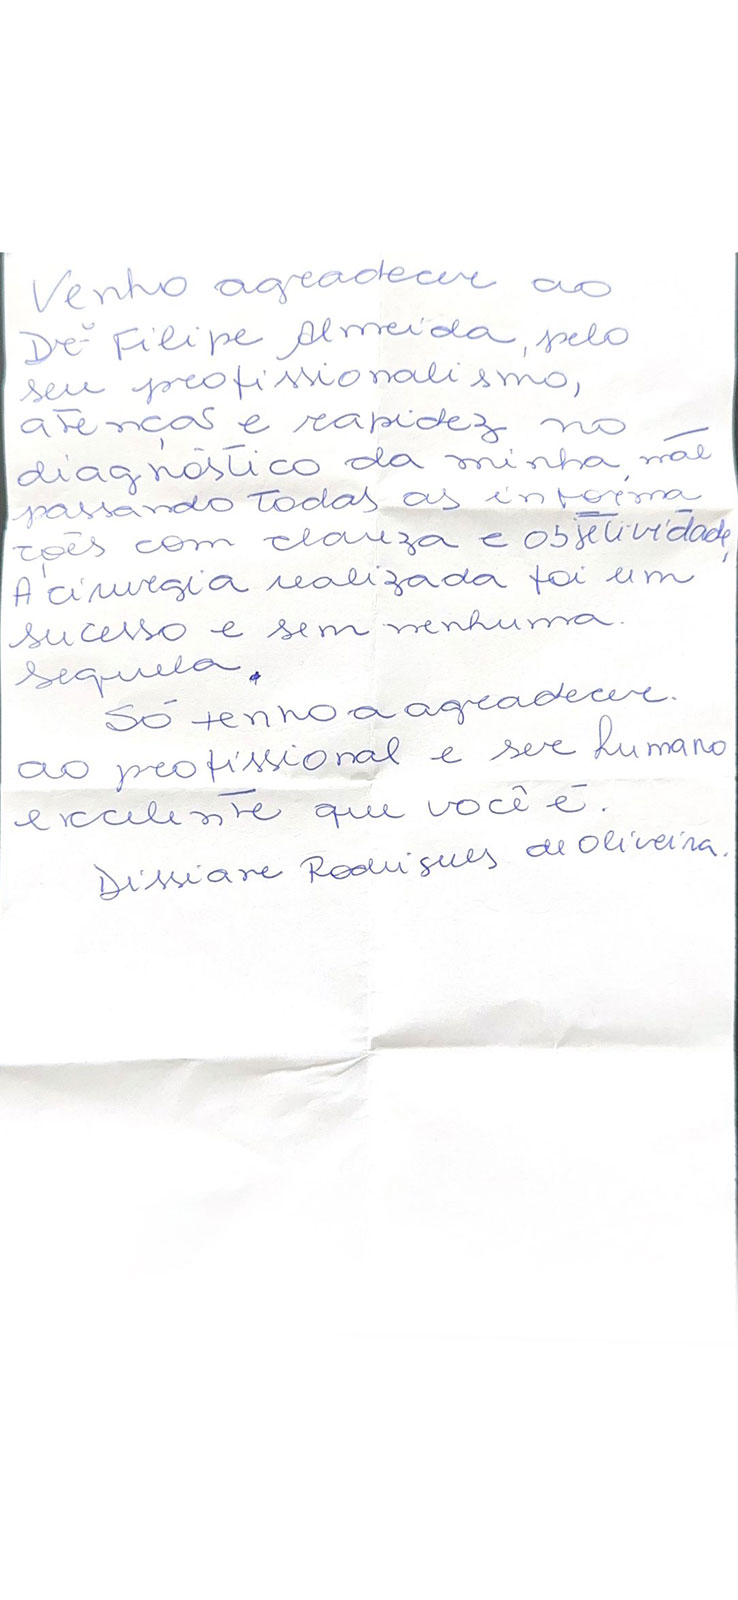 Venho agradecer ao
Drº Filipe Almeida, pelo
seu profissionalismo,
atenção e rapidez no
diagnóstico da minha mãe
passando todas as informa
ções com clareza e objetividade,
A cirurgia realizada foi um
sucesso e sem nenhuma.
sequela.
Só tenho a agradecer.
ao profissional e ser humano
excelente que você é.
Dissiane Rodrigues de Oliveira.